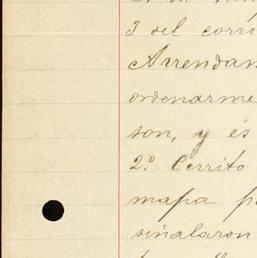 I del corri
Arrendam
ordenarme
son, y és
2.º Cerrito
mapa p
señalaron